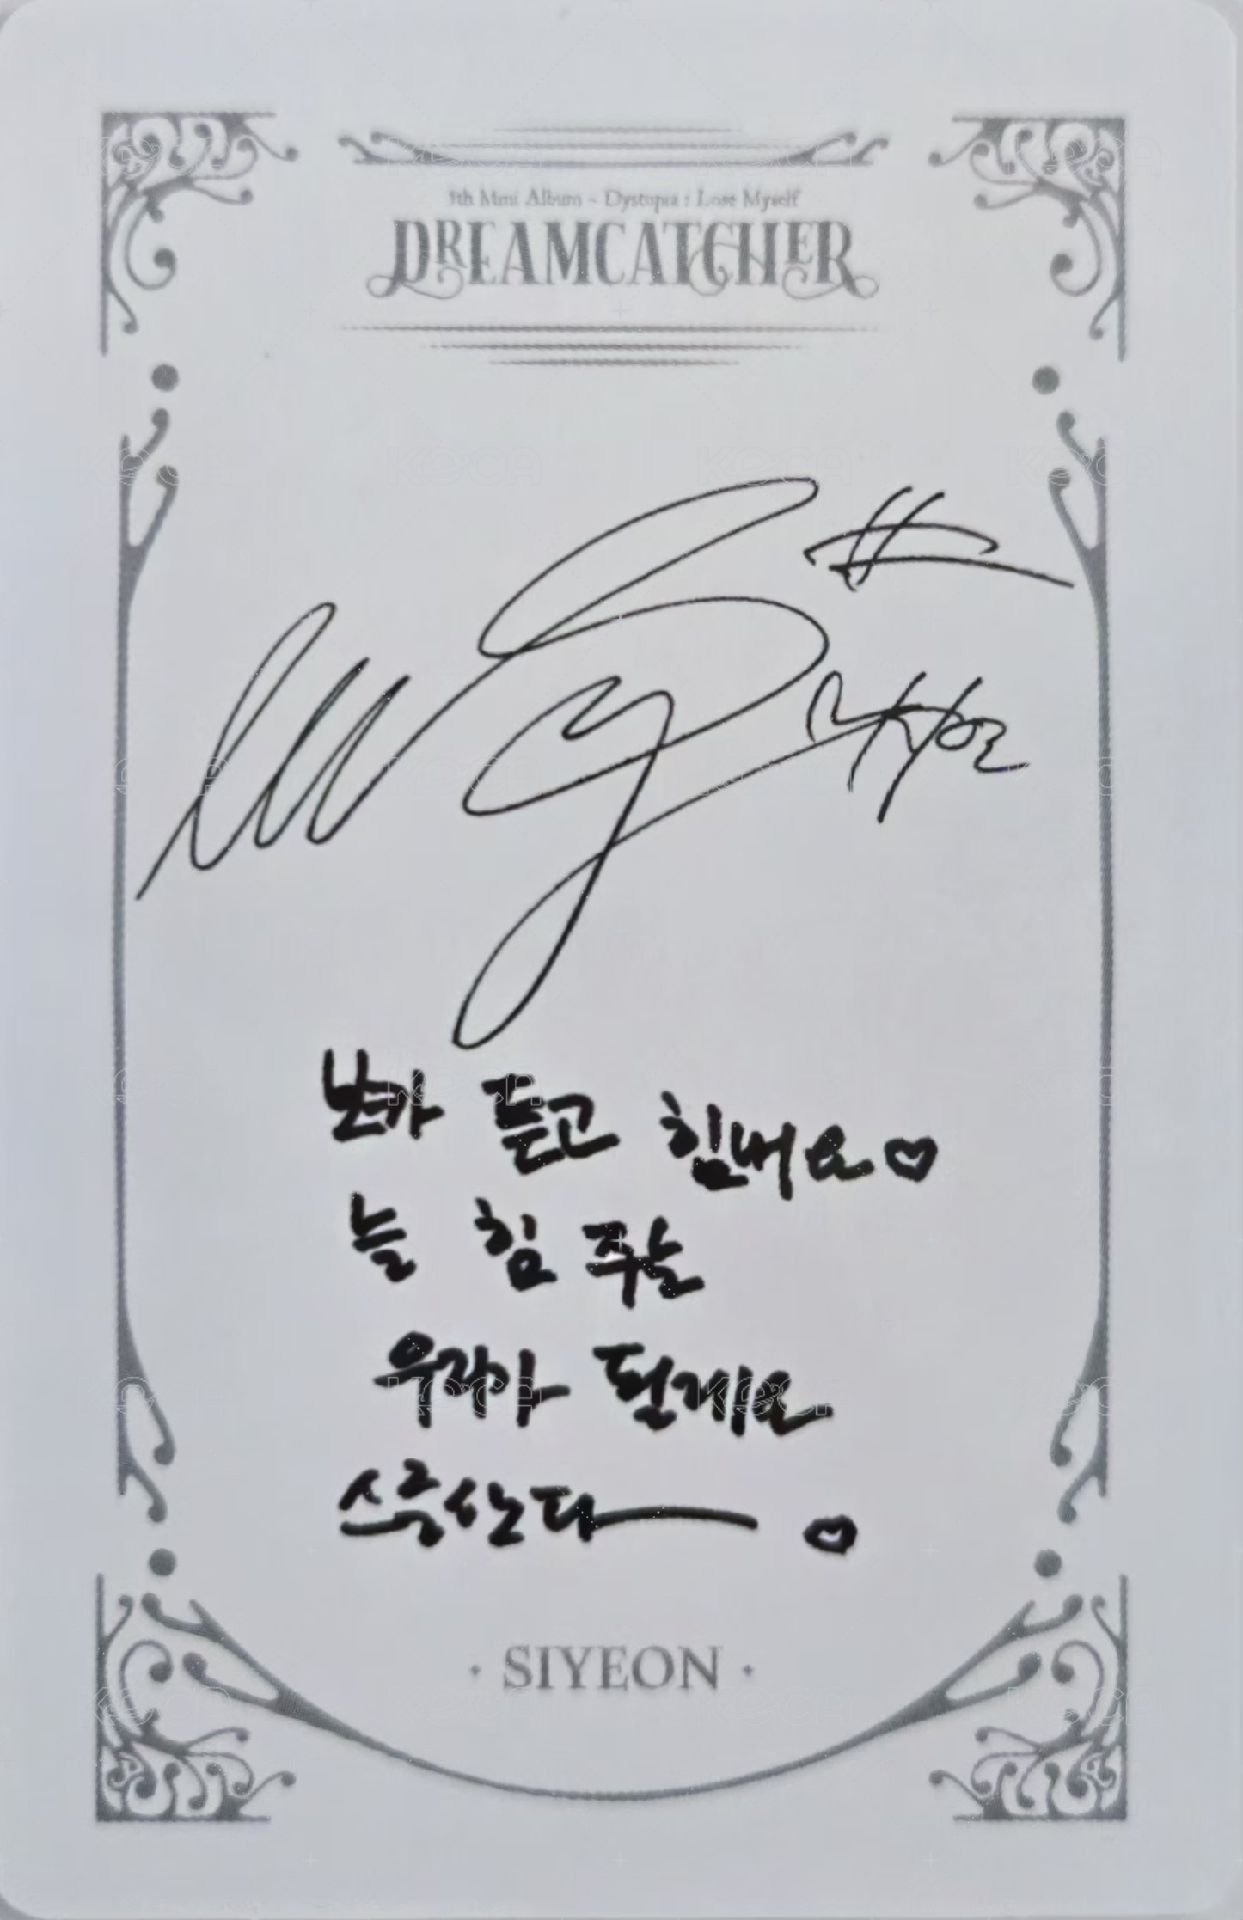 5th Mini Album - Dystopia : Lose Myself
DREAMCATCHER
보카 듣고 힘내요♡
늘 힘 주는
우리가 될게요
스릉산다 ♡
· SIYEON ·